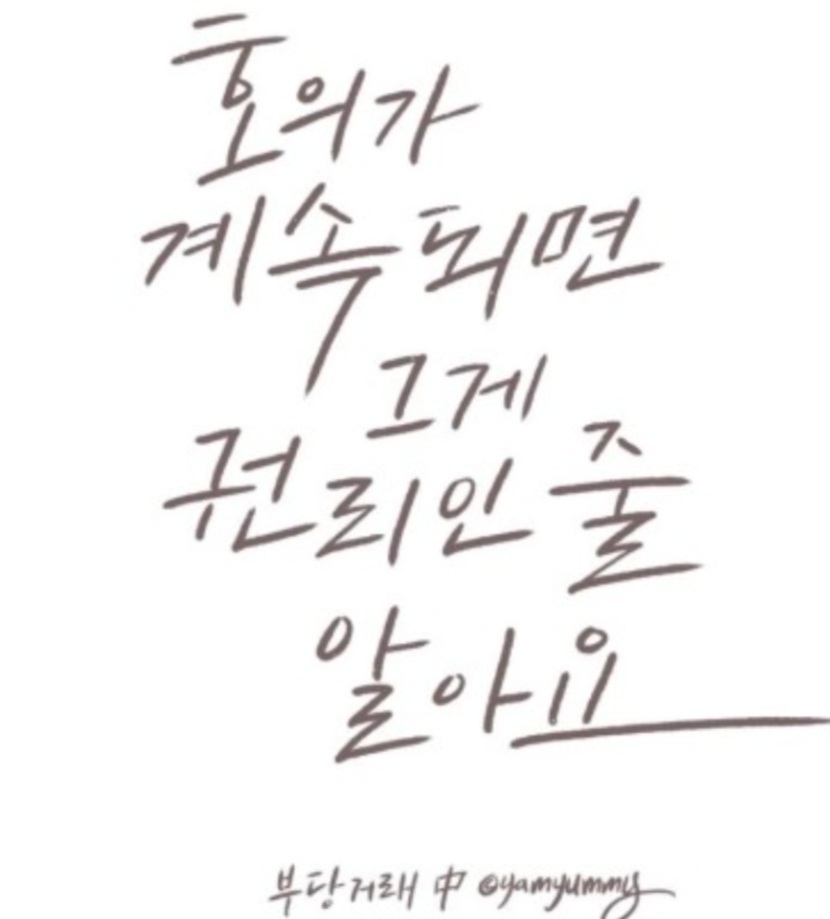 호의가
계속 되면
그게
권리인 줄
알아요
부당거래 中 ©yamyummy